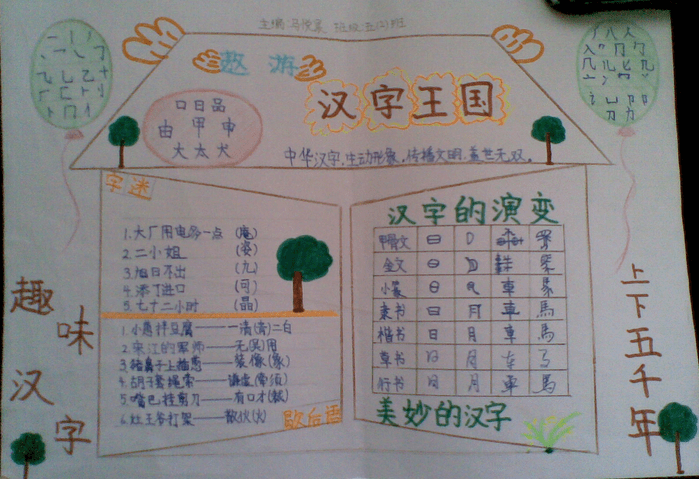 主编:马俊豪 班级:五(2)班
遨游
汉字王国
口日品
由甲申
大太犬
中华汉字,生动形象,传播文明,盖世无双。
字迷
1.大厂用电多一点 (庵)
2.二小姐 (姿)
3.旭日不出 (九)
4.添丁进口 (可)
5.七十二小时 (晶)
1.小葱拌豆腐——一清(青)二白
2.宋江的军师——无(吴)用
3.猪鼻子上插葱——装像(象)
4.胡子套绳索——谦虚(牵须)
5.嘴巴挂剪刀——有口才(裁)
6.灶王爷打架——散伙(火)
歇后语
汉字的演变
甲骨文
金文
小篆
隶书
楷书 日 月 車 馬
草书
行书 日 月 車 馬
美妙的汉字
趣味汉字
上下五千年